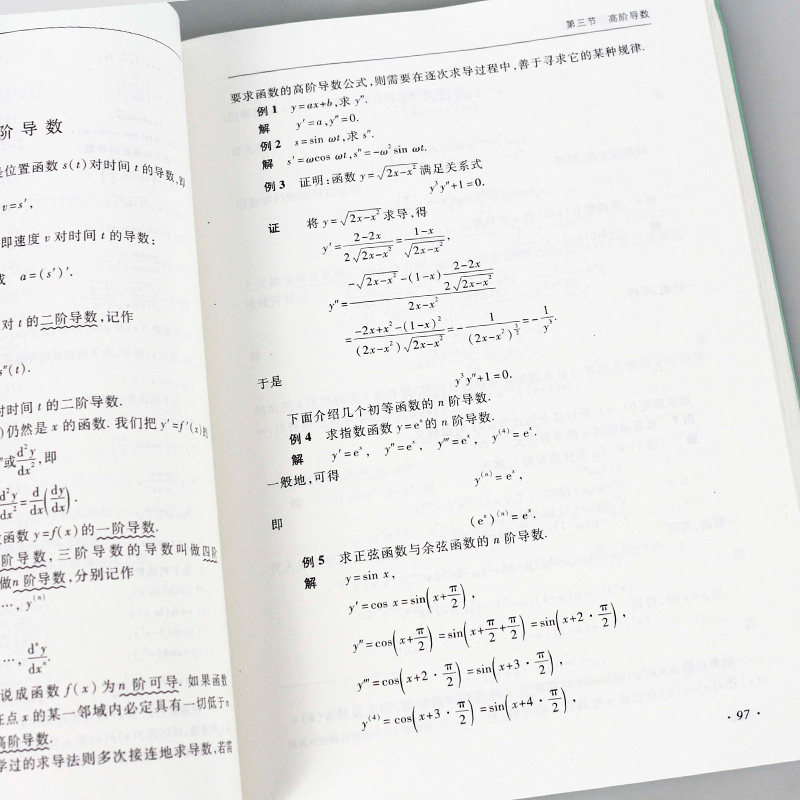 阶导数
位置函数 s(t) 对时间 t 的导数,即
v=s′,
即速度 v 对时间 t 的导数:
或 a=(s′)′.
对 t 的二阶导数,记作
s″(t).
对时间 t 的二阶导数.
)仍然是 x 的函数. 我们把 y′=f′(x)的
″或d²y/dx²,即
d²y/dx²=d/dx(dy/dx).
函数 y=f(x)的一阶导数.
阶导数,三阶导数的导数叫做四阶
做n 阶导数,分别记作
…, y⁽ⁿ⁾
…, dⁿy/dxⁿ.
说成函数 f(x)为 n 阶可导. 如果函数
在点 x 的某一邻域内必定具有一切低于 n
高阶导数.
学过的求导法则多次接连地求导数,若需
第三节 高阶导数
要求函数的高阶导数公式,则需要在逐次求导过程中,善于寻求它的某种规律.
例 1 y=ax+b,求 y″.
解 y′=a,y″=0.
例 2 s=sin ωt,求 s″.
解 s′=ωcos ωt,s″=-ω²sin ωt.
例 3 证明:函数 y=√(2x-x²) 满足关系式
y³y″+1=0.
证 将 y=√(2x-x²) 求导,得
y′=(2-2x)/(2√(2x-x²))=(1-x)/√(2x-x²),
y″=(-√(2x-x²)-(1-x)(2-2x)/(2√(2x-x²)))/(2x-x²)
=(-2x+x²-(1-x)²)/((2x-x²)√(2x-x²))=-1/(2x-x²)^(3/2)=-1/y³.
于是 y³y″+1=0.
下面介绍几个初等函数的 n 阶导数.
例 4 求指数函数 y=eˣ的 n 阶导数.
解 y′=eˣ, y″=eˣ, y‴=eˣ, y⁽⁴⁾=eˣ.
一般地,可得
y⁽ⁿ⁾=eˣ,
即 (eˣ)⁽ⁿ⁾=eˣ.
例 5 求正弦函数与余弦函数的 n 阶导数.
解 y=sin x,
y′=cos x=sin(x+π/2),
y″=cos(x+π/2)=sin(x+π/2+π/2)=sin(x+2·π/2),
y‴=cos(x+2·π/2)=sin(x+3·π/2),
y⁽⁴⁾=cos(x+3·π/2)=sin(x+4·π/2),
·97·